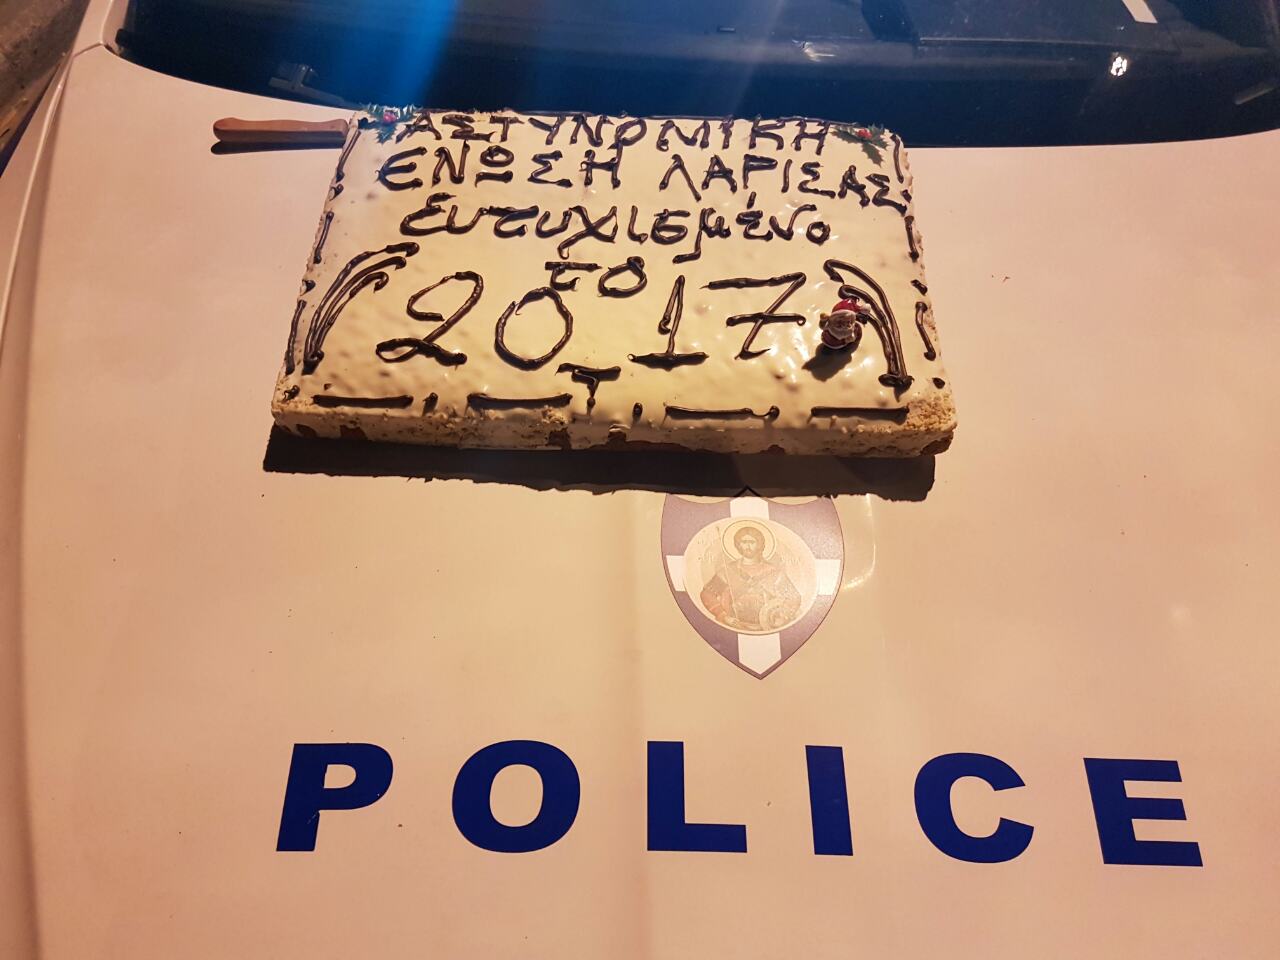 ΑΣΤΥΝΟΜΙΚΗ
ΕΝΩΣΗ ΛΑΡΙΣΑΣ
Ευτυχισμένο
το
2017
POLICE